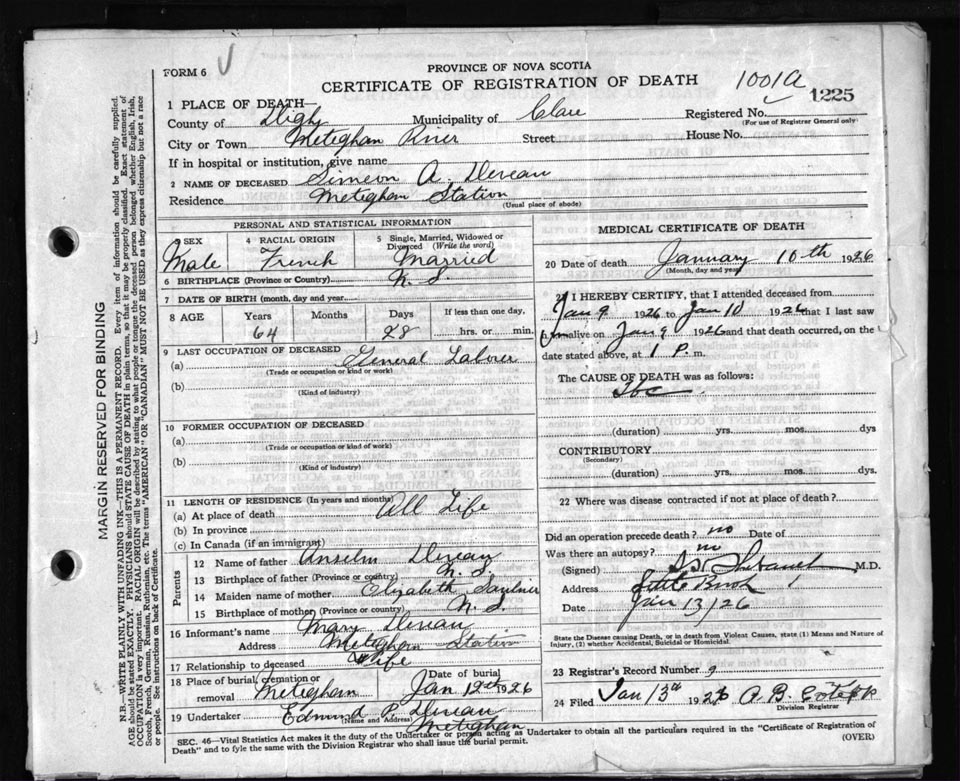 FORM 6
PROVINCE OF NOVA SCOTIA
CERTIFICATE OF REGISTRATION OF DEATH
1001A
1225
1 PLACE OF DEATH—
County of Digby Municipality of Clare Registered No.
(For use of Registrar General only)
City or Town Meteghan River Street House No.
If in hospital or institution, give name
2 NAME OF DECEASED Simeon A. Deveau
Residence Meteghan Station
(Usual place of abode)
PERSONAL AND STATISTICAL INFORMATION
3 SEX Male
4 RACIAL ORIGIN French
5 Single, Married, Widowed or Divorced (Write the word) Married
6 BIRTHPLACE (Province or Country) N. S.
7 DATE OF BIRTH (month, day and year)
8 AGE Years 64 Months Days 28 If less than one day, hrs. or min.
9 LAST OCCUPATION OF DECEASED
(a) General Laborer
(Trade or occupation or kind or work)
(b)
(Kind of industry)
10 FORMER OCCUPATION OF DECEASED
(a)
(Trade or occupation or kind of work)
(b)
(Kind of Industry)
11 LENGTH OF RESIDENCE (In years and months)
(a) At place of death All Life
(b) In province
(c) In Canada (if an immigrant)
Parents
12 Name of father Anselm Deveau
13 Birthplace of father (Province or country) N. S.
14 Maiden name of mother Elizabeth Saulner
15 Birthplace of mother (Province or country) N. S.
16 Informant's name Mary Deveau
Address Meteghan Station
17 Relationship to deceased Wife
18 Place of burial, cremation or removal Meteghan Date of burial Jan 12th 1926
19 Undertaker Edmund P. Deveau
(Name and Address) Meteghan
MEDICAL CERTIFICATE OF DEATH
20 Date of death January 10th 1926
(Month, day and year)
21 I HEREBY CERTIFY, that I attended deceased from
Jan 9 1926 to Jan 10 1926 that I last saw
him alive on Jan 9 1926 and that death occurred, on the
date stated above, at 1 P. m.
The CAUSE OF DEATH was as follows:
Tbc
(duration) yrs. mos. dys
CONTRIBUTORY
(Secondary)
(duration) yrs. mos. dys
22 Where was disease contracted if not at place of death?
Did an operation precede death? no Date of
Was there an autopsy? no
(Signed) M.D.
Address Little Brook
Date Jan 13/26
State the Disease causing Death, or in death from Violent Causes, state (1) Means and Nature of
Injury, (2) whether Accidental, Suicidal or Homicidal.
23 Registrar's Record Number 9
24 Filed Jan 13th 1926 A. B.
Division Registrar
SEC. 46—Vital Statistics Act makes it the duty of the Undertaker or person acting as Undertaker to obtain all the particulars required in the "Certificate of Registration of
Death" and to fyle the same with the Division Registrar who shall issue the burial permit.
(OVER)
MARGIN RESERVED FOR BINDING
N.B.—WRITE PLAINLY WITH UNFADING INK—THIS IS A PERMANENT RECORD. Every item of information should be carefully supplied.
AGE should be stated EXACTLY. PHYSICIANS should STATE CAUSE OF DEATH in plain terms, so that it may be properly classified. Exact statement of
OCCUPATION is very important. RACIAL ORIGIN will be described by stating to what people or tongue the deceased person belonged whether English, Irish,
Scotch, French, German, Russian, Ruthenian, etc. The terms "AMERICAN" OR "CANADIAN" MUST NOT BE USED as they express citizenship but not a race
or people. See instructions on back of Certificate.